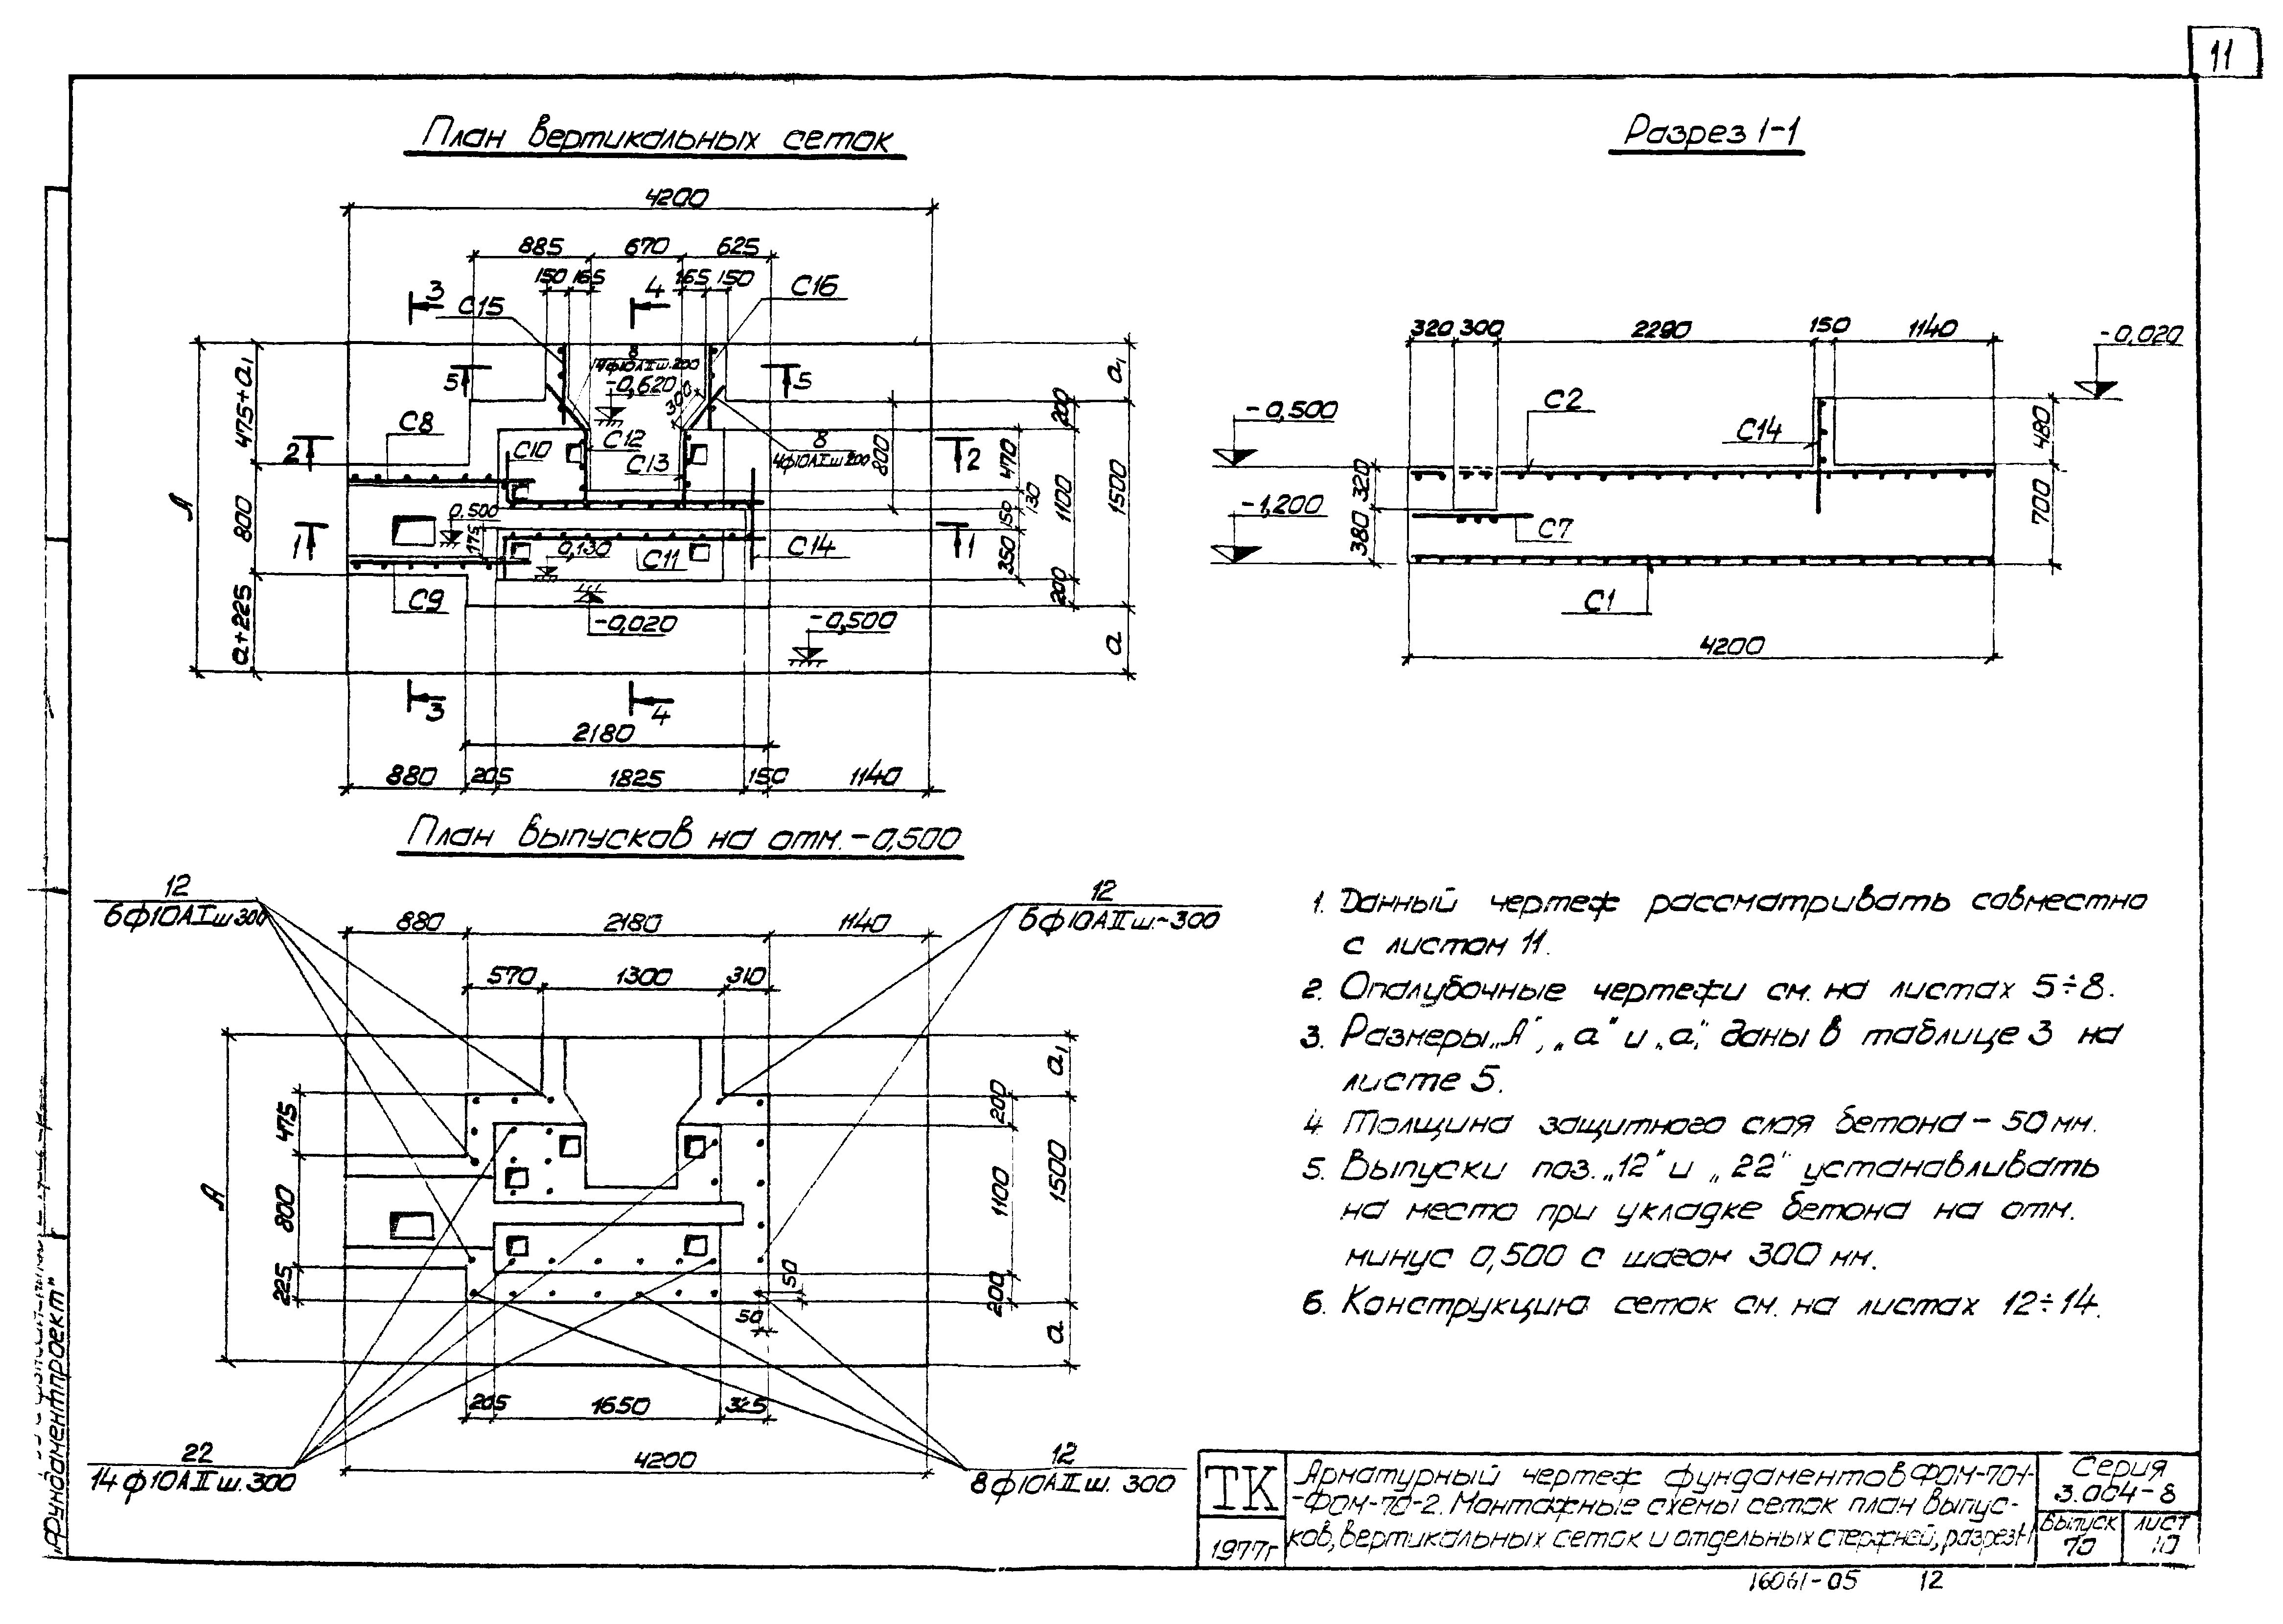 11
План вертикальных сеток
Разрез 1-1
4200
885 670 625
150 165 165 150
3 4
С15 С16
8
4ф10АIш.200
-0,620
300
5 5
А
475+а₁
800
а+225
С8
С10
С12
С13
8
4ф10АIш 200
2 2
0,500
175
0,130
С11
С14
1 1
С9
-0,020
-0,500
800
470
130
150
350
200
1100
200
а₁
1500
а
3 4
2180
880 205 1825 150 1140
320 300 2290 150 1140
-0,020
-0,500
С2
С14
480
320
-1,200
380
С7
700
С1
4200
План выпусков на отм.-0,500
12
6ф10АIш 300
12
6ф10АIIш.-300
880 2180 1140
570 1300 310
А
475
800
225
200
1100
200
а₁
1500
а
50
50
205 1650 325
4200
22
14ф10АIIш.300
12
8ф10АIIш. 300
1. Данный чертеж рассматривать совместно
с листом 11.
2. Опалубочные чертежи см. на листах 5÷8.
3. Размеры „А", „а" и „а₁" даны в таблице 3 на
листе 5.
4. Толщина защитного слоя бетона - 50 мм.
5. Выпуски поз. „12" и „22" устанавливать
на место при укладке бетона на отм.
минус 0,500 с шагом 300 мм.
6. Конструкцию сеток см. на листах 12÷14.
ТК
1977г
Арматурный чертеж фундаментов ФОМ-70-1
-ФОМ-70-2. Монтажные схемы сеток план выпус-
ков, вертикальных сеток и отдельных стержней, разрез 1-1
Серия
3.004-8
Выпуск
70
лист
10
16061-05 12
„Фундаментпроект"